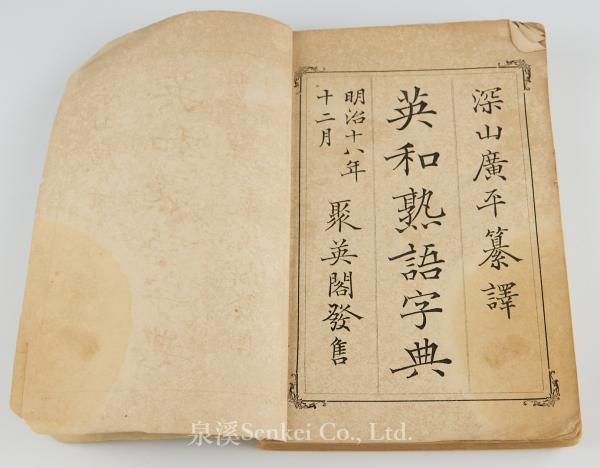 深山廣平纂譯
英和熟語字典
明治十八年
十二月
聚英閣發售
泉溪Senkei Co., Ltd.